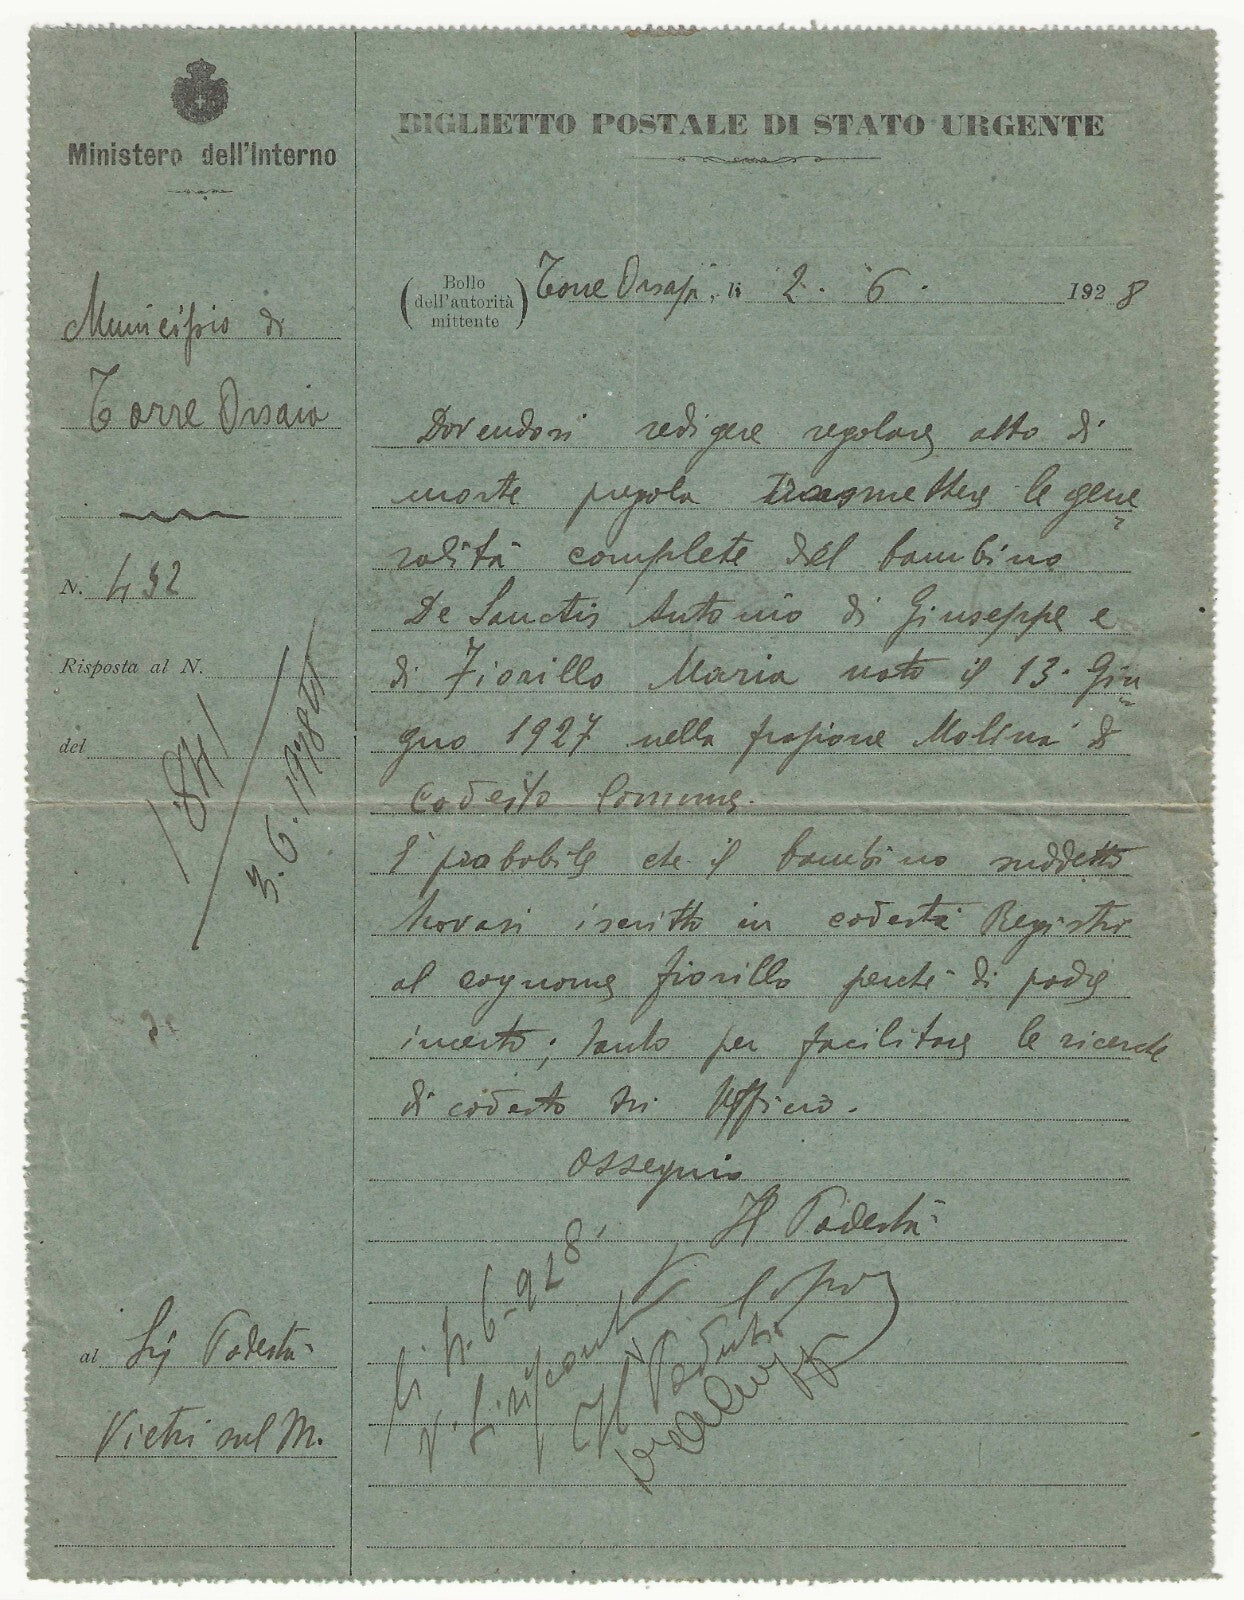 Ministero dell'Interno
Municipio di
Torre Orsaia
N. 492
Risposta al N.
del
1841
3.6.1928
al Sig Podestà
Vietri sul M.
BIGLIETTO POSTALE DI STATO URGENTE
(Bollo dell'autorità mittente) Torre Orsaja, li 2. 6. 1928
Dovendosi redigere regolare atto di
morte pregola trasmettere le gene
ralità complete del bambino
De Sanctis Antonio di Giuseppe e
di Fiorillo Maria nato il 13. Giu
gno 1927 nella frazione Molina di
codesto Comune.
È probabile che il bambino suddetto
trovasi iscritto in codesti Registri
al cognome Fiorillo perchè di padre
incerto; tanto per facilitare le ricerche
di codesto Uffizio.
Ossequio
Il Podestà
li 4.6.928
Il Podestà